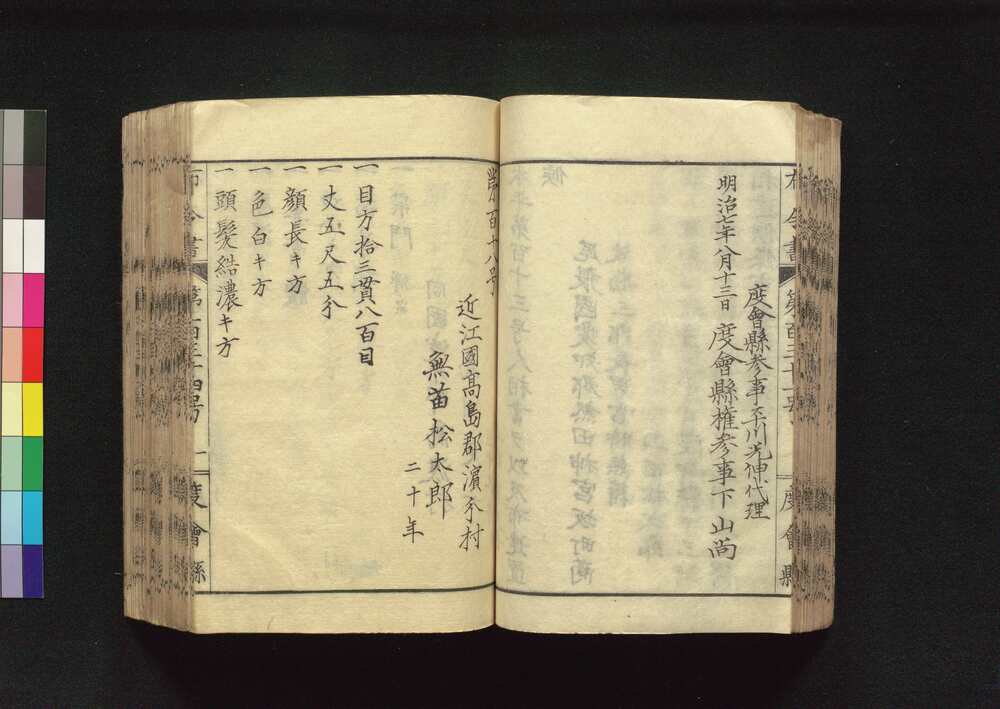 布令書 第百三十一号 度會縣
度會縣参事平川光伸代理
明治七年八月十三日 度會縣権参事下山尚
第百十八号
近江國髙島郡濱分村
無苗松太郎
二十年
一目方拾三貫八百目
一丈五尺五分
一顔長キ方
一色白キ方
一頭髪結濃キ方
布令書 度會縣